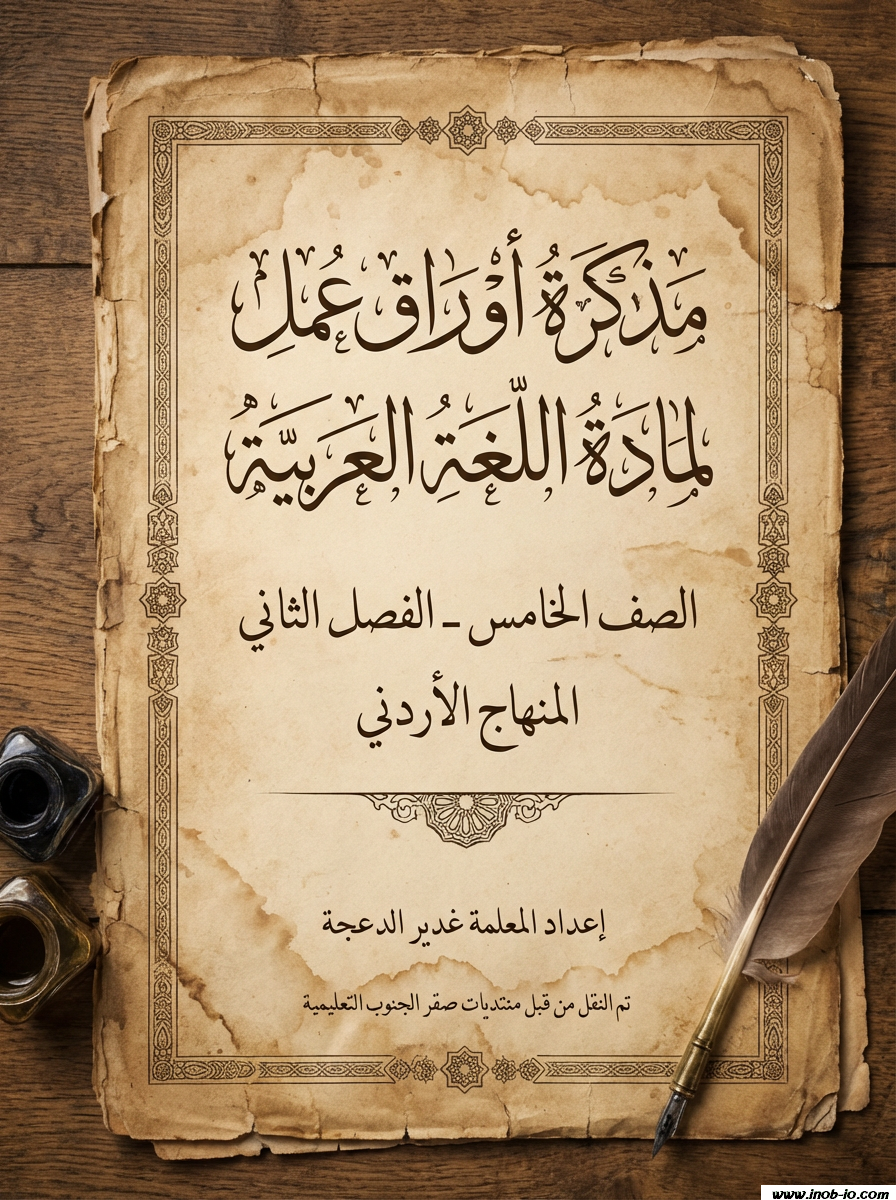 مَذكَرَةُ أوْرَاق عُملِ
لمَادَةُ اللّغَةِ العَرَبيَّةُ
الصف الخامس – الفصل الثاني
المنهاج الأردني
إعداد المعلمة غدير الدعجة
تم النقل من قبل منتديات صقر الجنوب التعليمية
www.jnob-jo.com